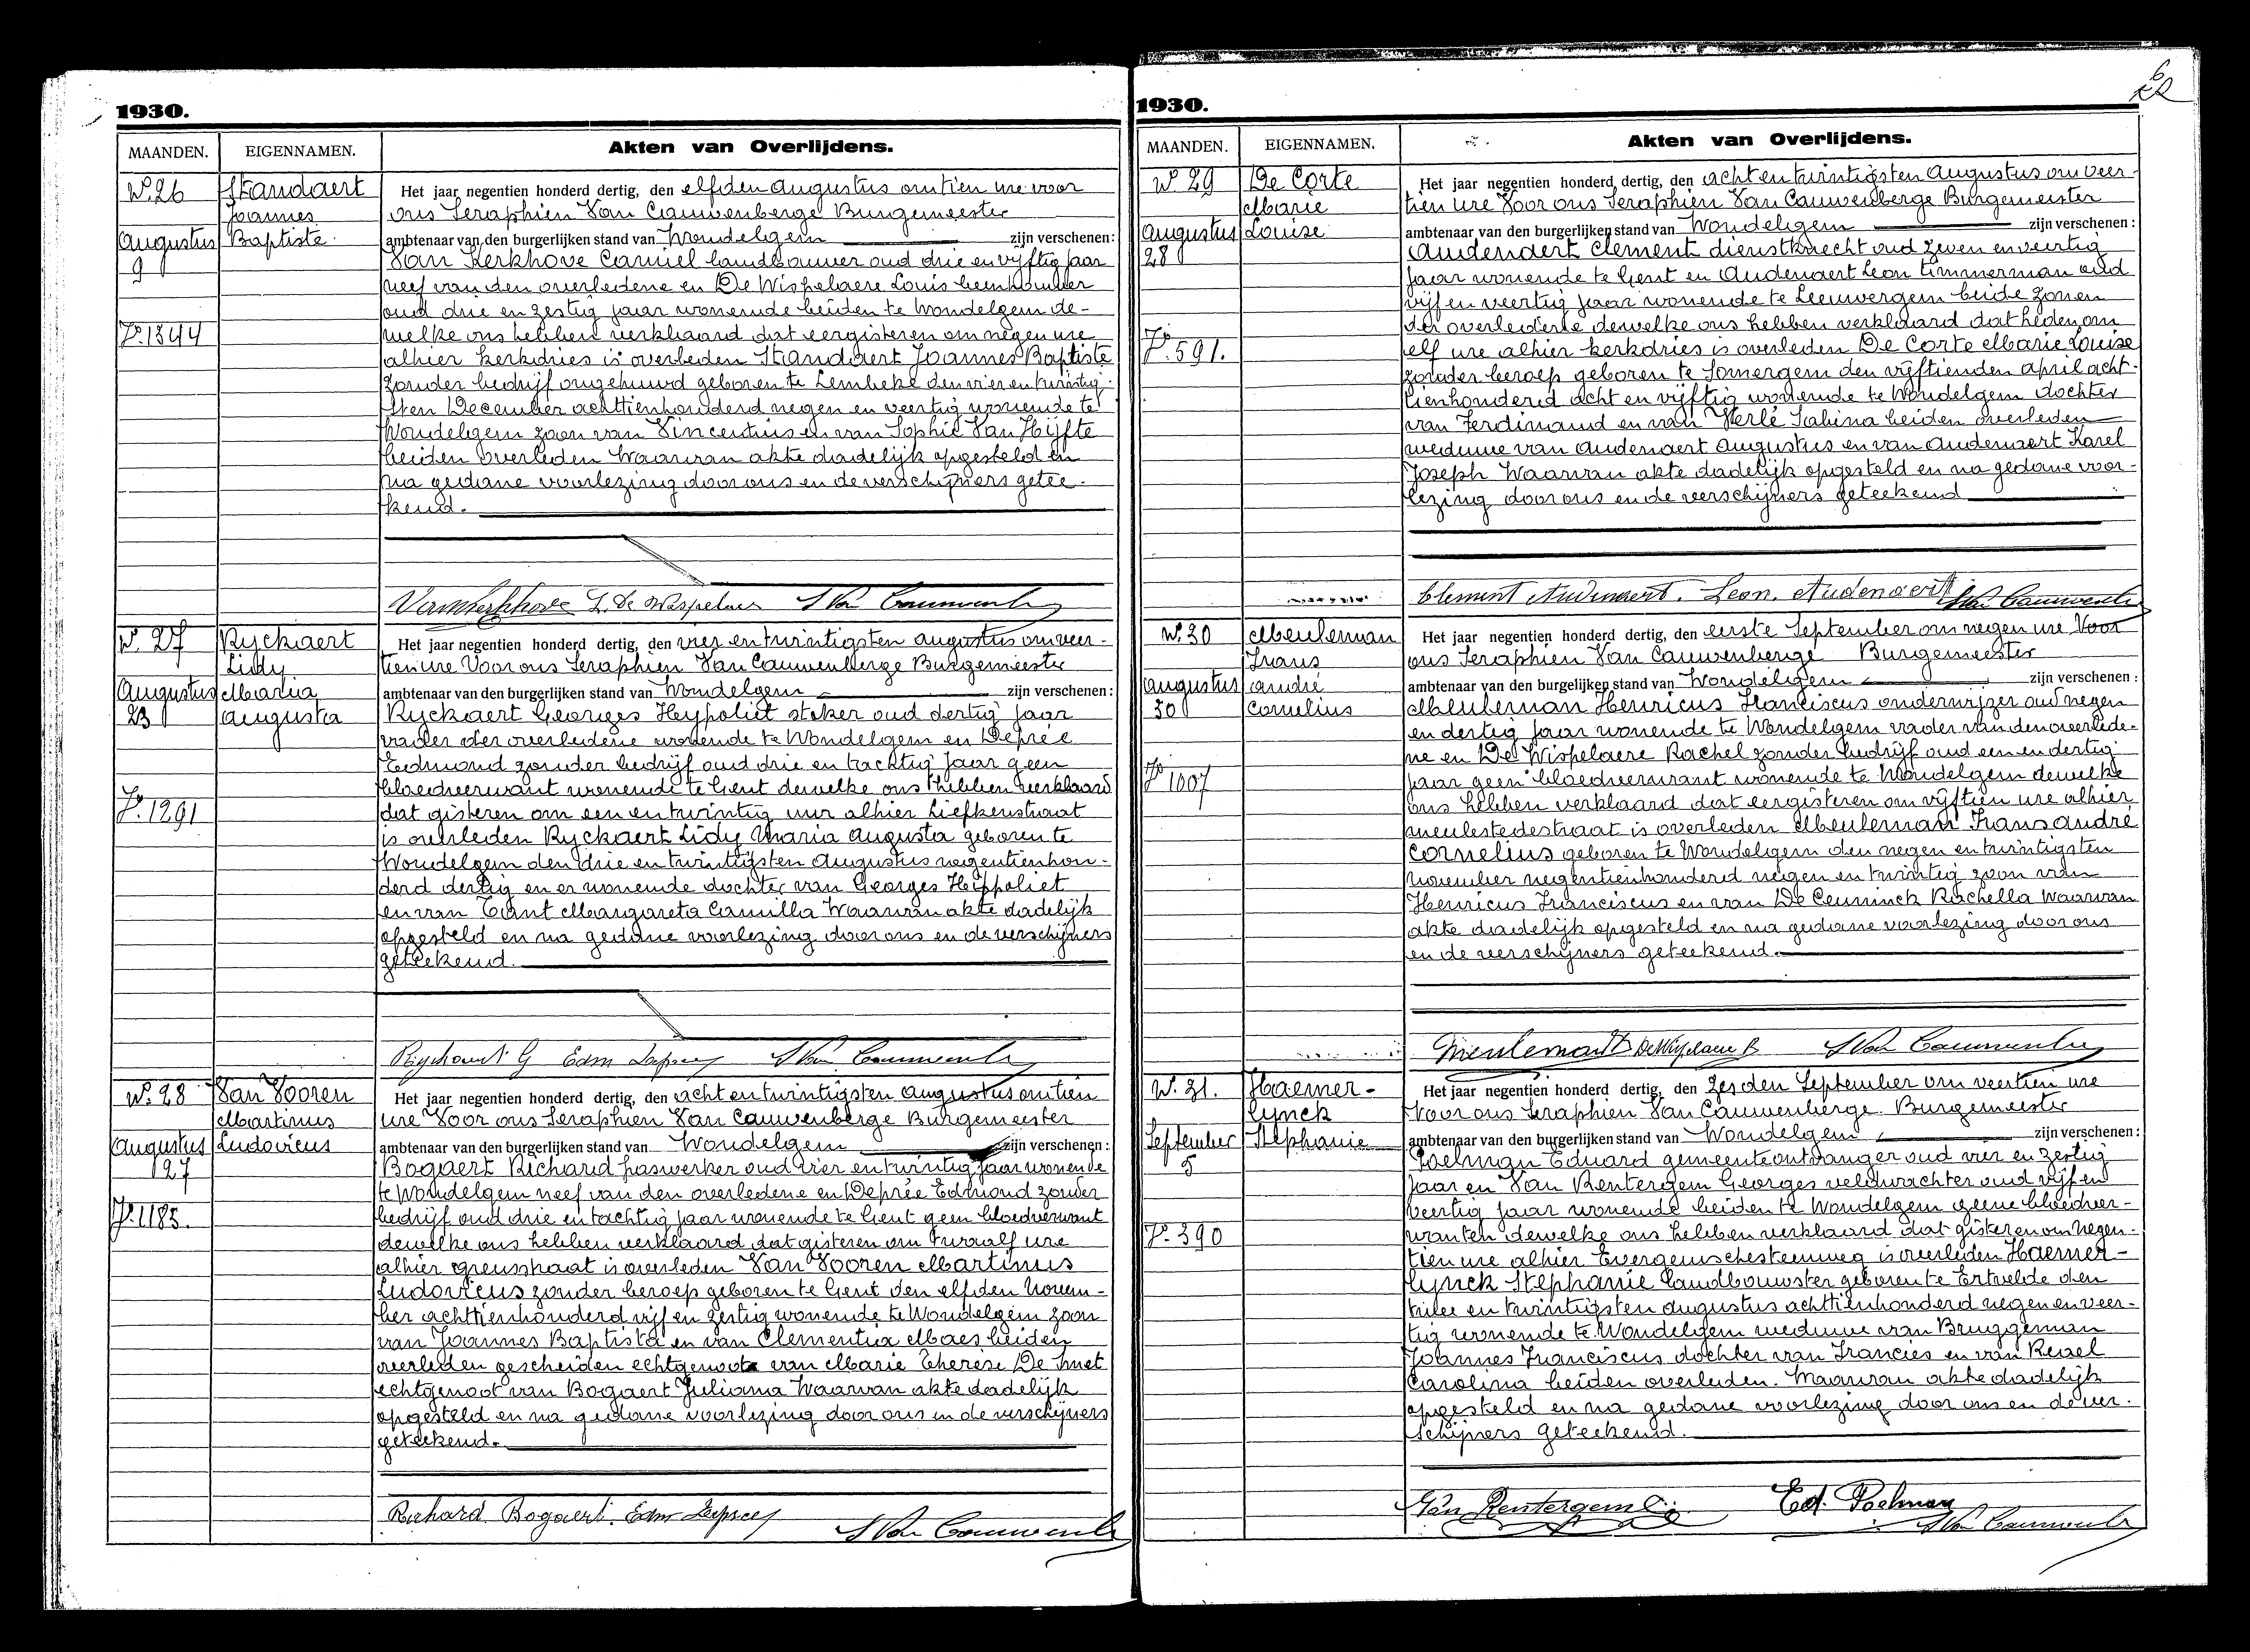 1930.
MAANDEN. EIGENNAMEN. Akten van Overlijdens.
No. 26 Standaert
Joannes
Baptiste
Augustus
9
Fo. 1344
Het jaar negentien honderd dertig, den elfden augustus om tien ure voor
ons Seraphien Van Cauwenberge Burgemeester
ambtenaar van den burgerlijken stand van Wondelgem zijn verschenen:
Van Kerkhove Camiel landbouwer oud drie en vijftig jaar
neef van den overledene en De Wispelaere Louis beenhouwer
oud drie en zestig jaar wonende beiden te Wondelgem de-
welke ons hebben verklaard dat eergisteren om negen ure
alhier kerkdries is overleden Standaert Joannes Baptiste
zonder bedrijf ongehuwd geboren te Lembeke den vier en twintig-
sten December achttienhonderd negen en veertig wonende te
Wondelgem zoon van Vincentius en van Sophie Van Hijfte
beiden overleden Waarvan akte dadelijk opgesteld en
na gedane voorlezing door ons en de verschijners getee-
kend.
L. De Wispelaere S Van Cauwenberge
No. 27 Ryckaert
Lidy
Maria
Augusta
Augustus
23
Fo. 1291
Het jaar negentien honderd dertig, den vier en twintigsten augustus om veer-
tien ure Voor ons Seraphien Van Cauwenberge Burgemeester
ambtenaar van den burgerlijken stand van Wondelgem zijn verschenen:
Ryckaert Georges Heypoliet stoker oud dertig jaar
vader der overledene wonende te Wondelgem en Deprée
Edmond zonder bedrijf oud drie en tachtig jaar geen
bloedverwant wonende te Gent dewelke ons hebben verklaard
dat gisteren om een en twintig uur alhier Liefkenstraat
is overleden Ryckaert Lidy Maria Augusta geboren te
Wondelgem den drie en twintigsten Augustus negentienhon-
derd dertig en er wonende dochter van Georges Heippoliet
en van Tant Margareta Camilla Waarvan akte dadelijk
opgesteld en na gedane voorlezing door ons en de verschijners
geteekend.
Ryckaert G Edm Depree S Van Cauwenberge
No. 28 Van Vooren
Martinus
Ludovicus
Augustus
27
Fo. 1185.
Het jaar negentien honderd dertig, den acht en twintigsten augustus om tien
ure Voor ons Seraphien Van Cauwenberge Burgemeester
ambtenaar van den burgerlijken stand van Wondelgem zijn verschenen:
Bogaert Richard paswerker oud vier en twintig jaar wonende
te Wondelgem neef van den overledene en Deprée Edmond zonder
bedrijf oud drie en tachtig jaar wonende te Gent geen bloedverwant
dewelke ons hebben verklaard dat gisteren om twaalf ure
alhier greusstraat is overleden Van Vooren Martinus
Ludovicus zonder beroep geboren te Gent den elfden Novem-
ber achttienhonderd vijf en zestig wonende te Wondelgem zoon
van Joannes Baptista en van Clementia Maes beiden
overleden gescheiden echtgenoot van Marie Therèse De Smet
echtgenoot van Bogaert Juliana Waarvan akte dadelijk
opgesteld en na gedane voorlezing door ons en de verschijners
geteekend.
Richard Bogaert. Edm Depree S Van Cauwenberge
1930.
MAANDEN. EIGENNAMEN. Akten van Overlijdens.
No 29 De Corte
Marie
Louise
Augustus
28
Fo. 591.
Het jaar negentien honderd dertig, den acht en twintigsten Augustus om veer-
tien ure Voor ons Seraphien Van Cauwenberge Burgemeester
ambtenaar van den burgerlijken stand van Wondelgem zijn verschenen:
Audenaert Clement dienstknecht oud zeven en veertig
jaar wonende te Gent en Audenaert Leon timmerman oud
vijf en veertig jaar wonende te Leeuwergem beide zonen
der overledene dewelke ons hebben verklaard dat heden om
elf ure alhier kerkdries is overleden De Corte Marie Louise
zonder beroep geboren te Somergem den vijftienden april acht-
tienhonderd acht en vijftig wonende te Wondelgem dochter
van Ferdinand en van Herlé Sabina beiden overleden
weduwe van Audenaert Augustus en van Audenaert Karel
Joseph Waarvan akte dadelijk opgesteld en na gedane voor-
lezing door ons en de verschijners geteekend
Clement Audenaert. Leon. Audenaert S Van Cauwenberge
No. 30 Meuleman
Frans
André
Cornelius
Augustus
30
Fo 1007
Het jaar negentien honderd dertig, den eerste September om negen ure Voor
ons Seraphien Van Cauwenberge Burgemeester
ambtenaar van den burgelijken stand van Wondelgem zijn verschenen:
Meuleman Henricus Franciscus onderwijzer oud negen
en dertig jaar wonende te Wondelgem vader van den overlede-
ne en De Wispelaere Rachel zonder bedrijf oud een en dertig
jaar geen bloedverwant wonende te Wondelgem dewelke
ons hebben verklaard dat eergisteren om vijftien ure alhier
meulestedestraat is overleden Meuleman Frans André
Cornelius geboren te Wondelgem den negen en twintigsten
november negentienhonderd negen en twintig zoon van
Henricus Franciscus en van De Ceuninck Rachella Waarvan
akte dadelijk opgesteld en na gedane voorlezing door ons
en de verschijners geteekend.
Meuleman De Wispelaere R S Van Cauwenberge
No. 31. Haemer-
lynck
Stephanie
September
5
Fo. 390
Het jaar negentien honderd dertig, den zesden September om veertien ure
Voor ons Seraphien Van Cauwenberge Burgemeester
ambtenaar van den burgerlijken stand van Wondelgem zijn verschenen:
Poelman Eduard gemeenteontvanger oud vier en zestig
jaar en Van Rentergem Georges veldwachter oud vijf en
veertig jaar wonende beiden te Wondelgem geene bloedver-
wanten dewelke ons hebben verklaard dat gisteren om negen-
tien ure alhier Evergemschesteenweg is overleden Haemer-
lynck Stephanie landbouwster geboren te Ertvelde den
twee en twintigsten augustus achttienhonderd negen en veer-
tig wonende te Wondelgem weduwe van Bruggeman
Joannes Franciscus dochter van Francies en van Reuzel
Carolina beiden overleden. Waarvan akte dadelijk
opgesteld en na gedane voorlezing door ons en de ver-
schijners geteekend.
Van Rentergem G. Ed. Poelman
S Van Cauwenberge